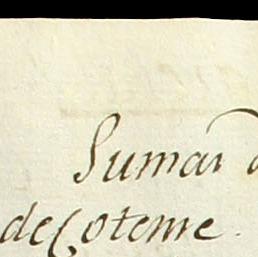 Sumar d
de Coteme.